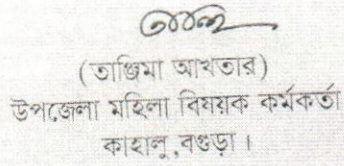 (তাঞ্জিমা আখতার)
উপজেলা মহিলা বিষয়ক কর্মকর্তা
কাহালু,বগুড়া।